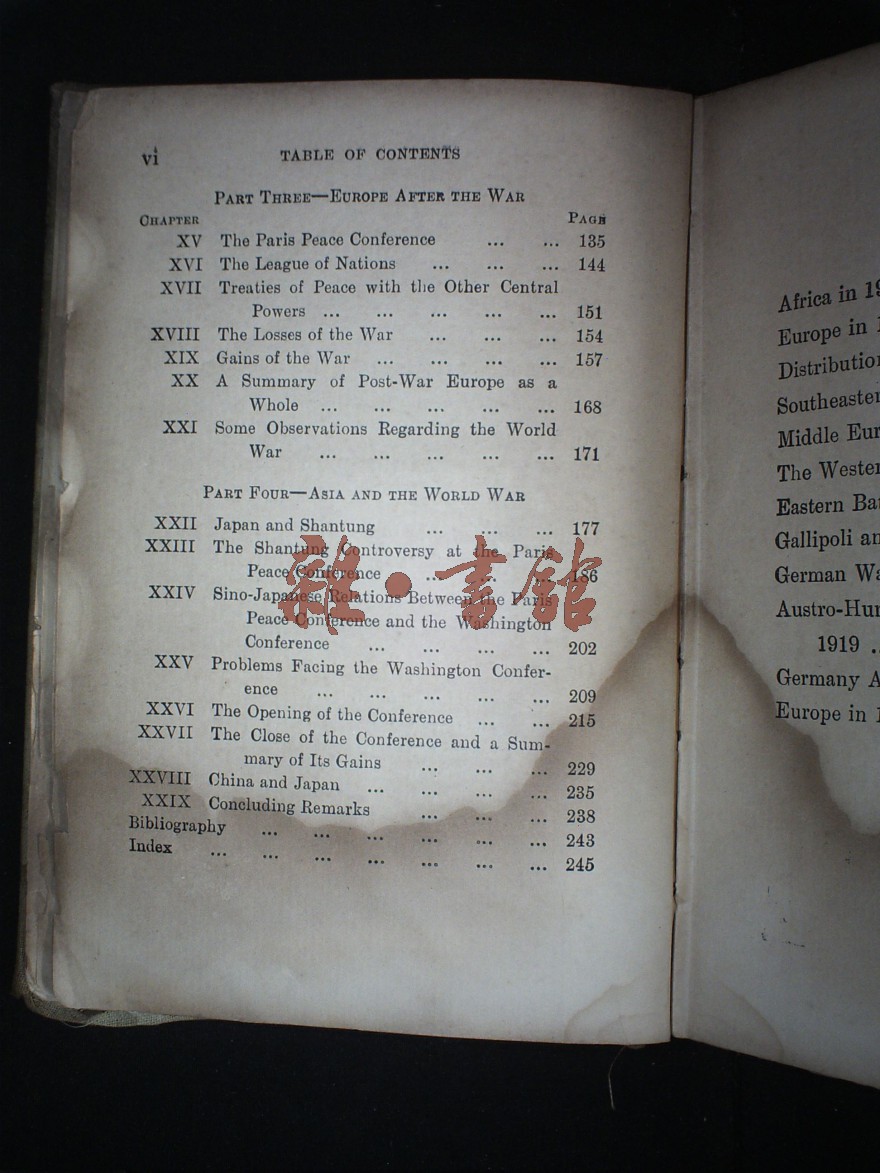 vi
TABLE OF CONTENTS
PART THREE—EUROPE AFTER THE WAR
CHAPTER PAGE
XV The Paris Peace Conference ... ... 135
XVI The League of Nations ... ... ... 144
XVII Treaties of Peace with the Other Central
Powers ... ... ... ... ... 151
XVIII The Losses of the War ... ... ... 154
XIX Gains of the War ... ... ... ... 157
XX A Summary of Post-War Europe as a
Whole ... ... ... ... ... 168
XXI Some Observations Regarding the World
War ... ... ... ... ... 171
PART FOUR—ASIA AND THE WORLD WAR
XXII Japan and Shantung ... ... ... 177
XXIII The Shantung Controversy at the Paris
Peace Conference ... ... ... 186
XXIV Sino-Japanese Relations Between the Paris
Peace Conference and the Washington
Conference ... ... ... ... 202
XXV Problems Facing the Washington Confer-
ence ... ... ... ... ... 209
XXVI The Opening of the Conference ... ... 215
XXVII The Close of the Conference and a Sum-
mary of Its Gains ... ... ... 229
XXVIII China and Japan ... ... ... ... 235
XXIX Concluding Remarks ... ... ... 238
Bibliography ... ... ... ... ... ... 243
Index ... ... ... ... ... ... ... 245
雜·書館
Africa in 19
Europe in
Distribution
Southeaster
Middle Eur
The Wester
Eastern Bat
Gallipoli an
German Wa
Austro-Hun
1919 ..
Germany A
Europe in 1